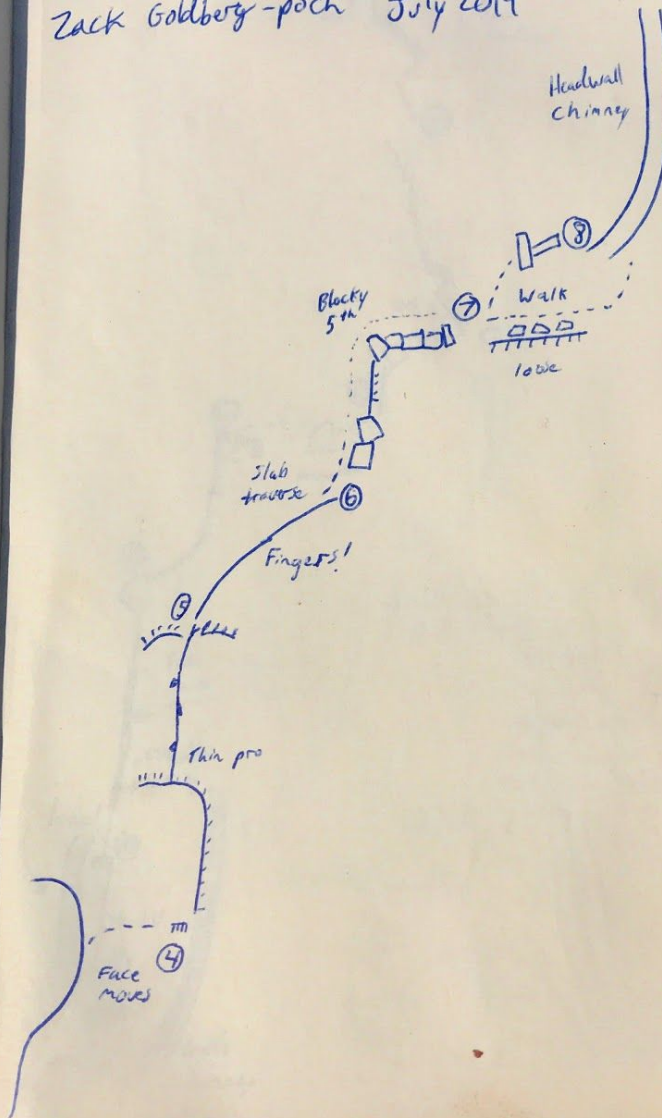 Zack Goldberg-poch July 2019
Headwall
Chimney
8
Blocky
5th
7
Walk
Slab
traverse
6
Fingers!
5
Thin pro
4
Face
moves